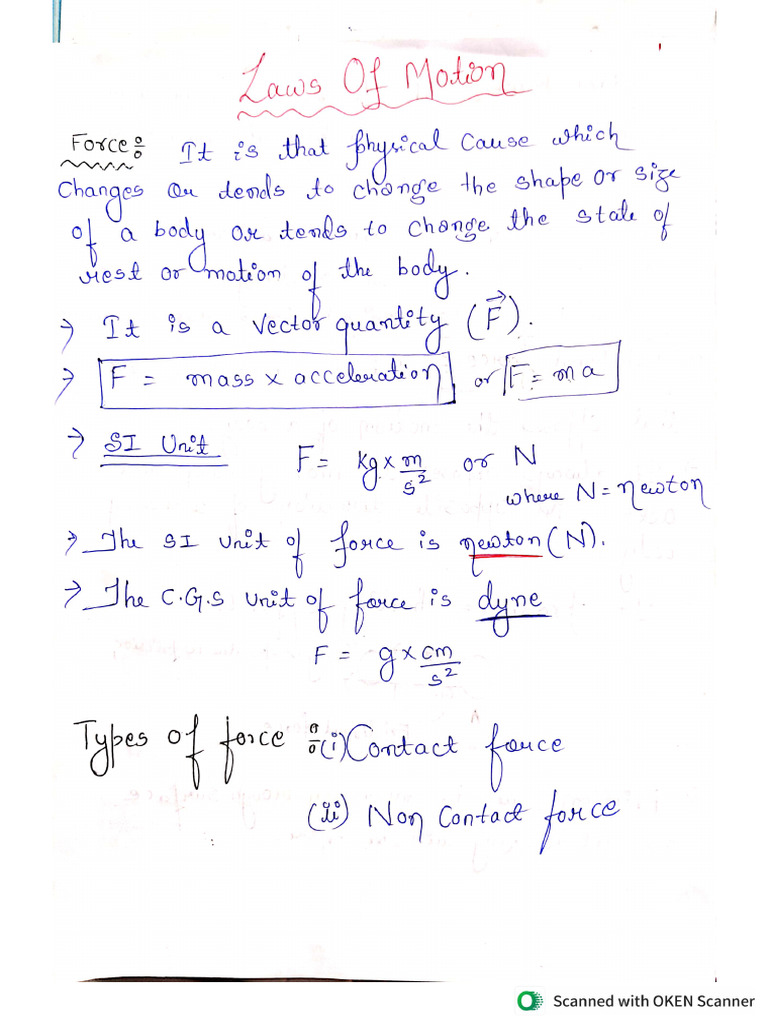 Laws Of Motion
Force: It is that physical cause which
changes or tends to change the shape or size
of a body or tends to change the state of
rest or motion of the body.
→ It is a vector quantity (F⃗).
→ F = mass x acceleration or F = ma
→ SI Unit F = kg x m/s² or N
where N = newton
→ The SI unit of force is newton (N).
→ The C.G.S unit of force is dyne
F = g x cm/s²
Types of force : (i) Contact force
(ii) Non Contact force
Scanned with OKEN Scanner